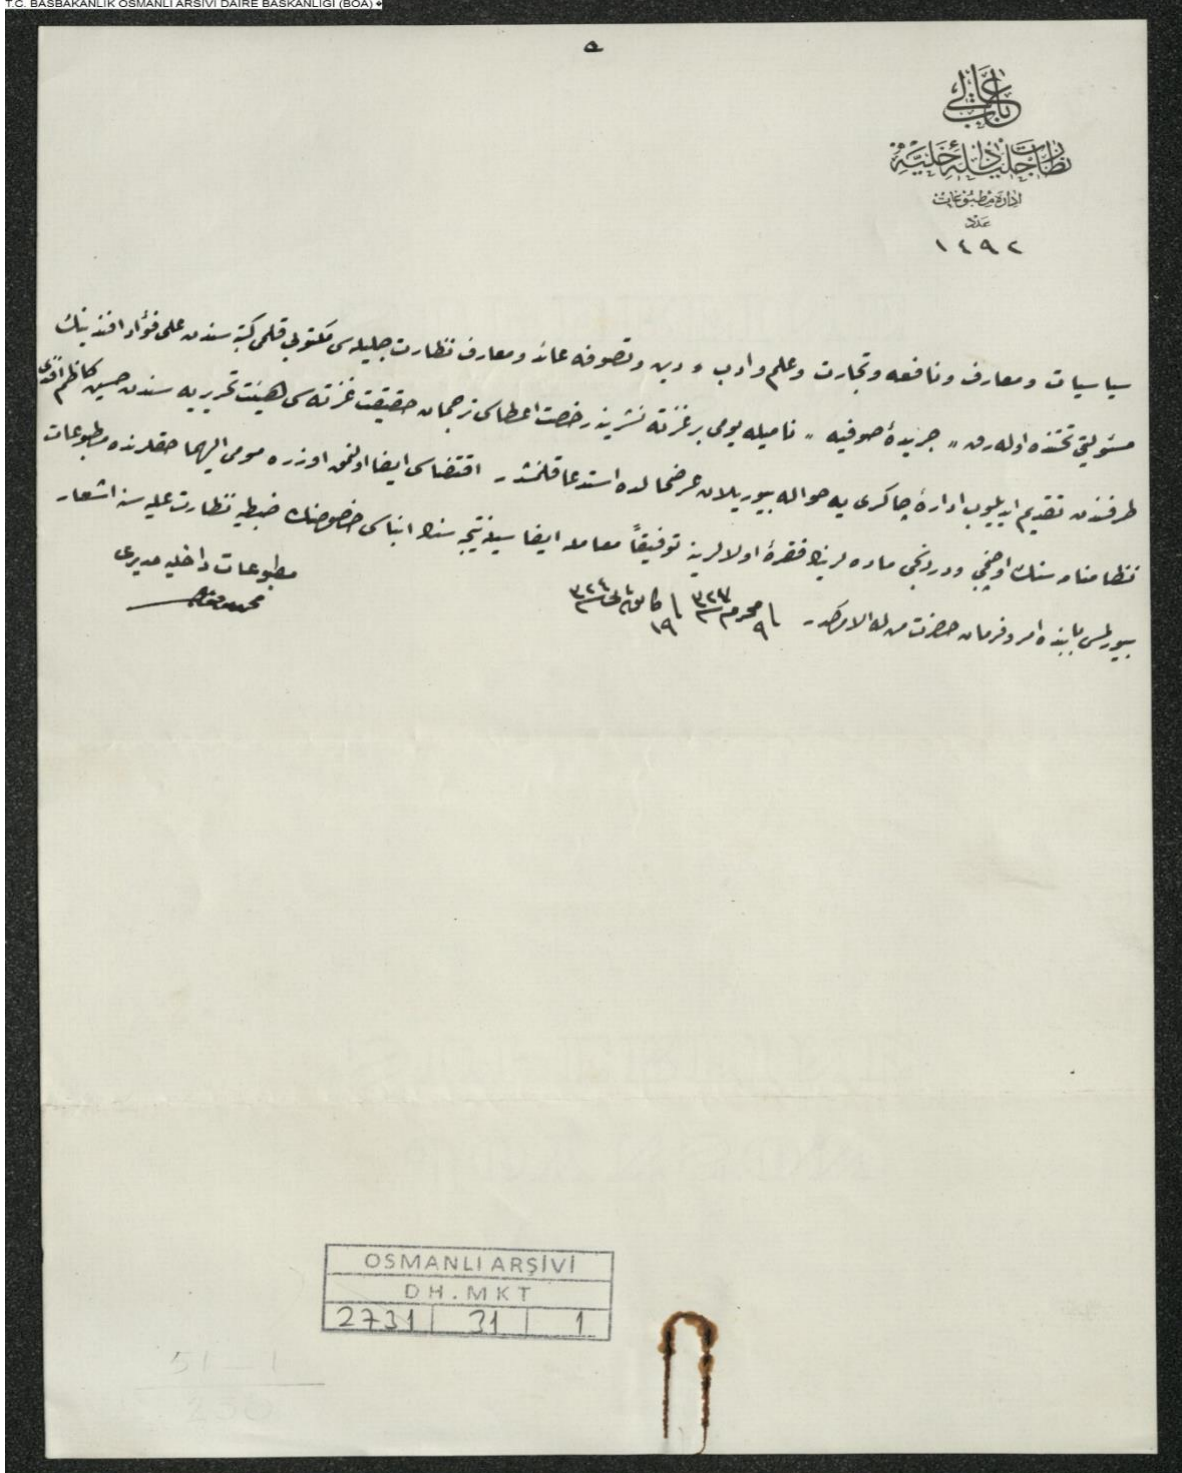 T.C. BASBAKANLIK OSMANLI ARSIVI DAIRE BASKANLIGI (BOA)
باب عالی
نظارت جلیلهٔ داخلیه
ادارهٔ مطبوعات
عدد
١٤٩٢
سیاسیات و معارف و نافعه و تجارت و علم و ادب و دین و تصوفه عائد و معارف نظارت جلیله‌سی مکتوبی قلمی کتبه‌سندن علی فؤاد افندینك
مسئولیتی تحتنده اوله‌رق « جریدهٔ صوفیه » نامیله یومی بر غزته نشرینه رخصت اعطاسی ترجمان حقیقت غزته‌سی هیئت تحریریه‌سندن حسین کاظم افندی
طرفندن تقدیم ایدیلوب ادارهٔ چاکری‌یه حواله بیوریلان عرضحالده استدعا قلنمشدر اقتضاسی ایفا اولنمق اوزره مومی الیهما حقلرنده مطبوعات
نظامنامه‌سنك اوچنجی و دردنجی ماده‌لرینك فقرهٔ اولالرینه توفیقاً معامله ایفاسیله نتیجه‌سنك انباسی خصوصنك ضبطیه نظارت علیه‌سنه اشعار
بیورلمسی بابنده امر و فرمان حضرت من له الامرکدر
٩ محرم ٣٢٧
١٩ کانون ثانی ٣٢٤
مطبوعات داخلیه مدیری
OSMANLI ARŞİVİ
DH.MKT
2731 31 1